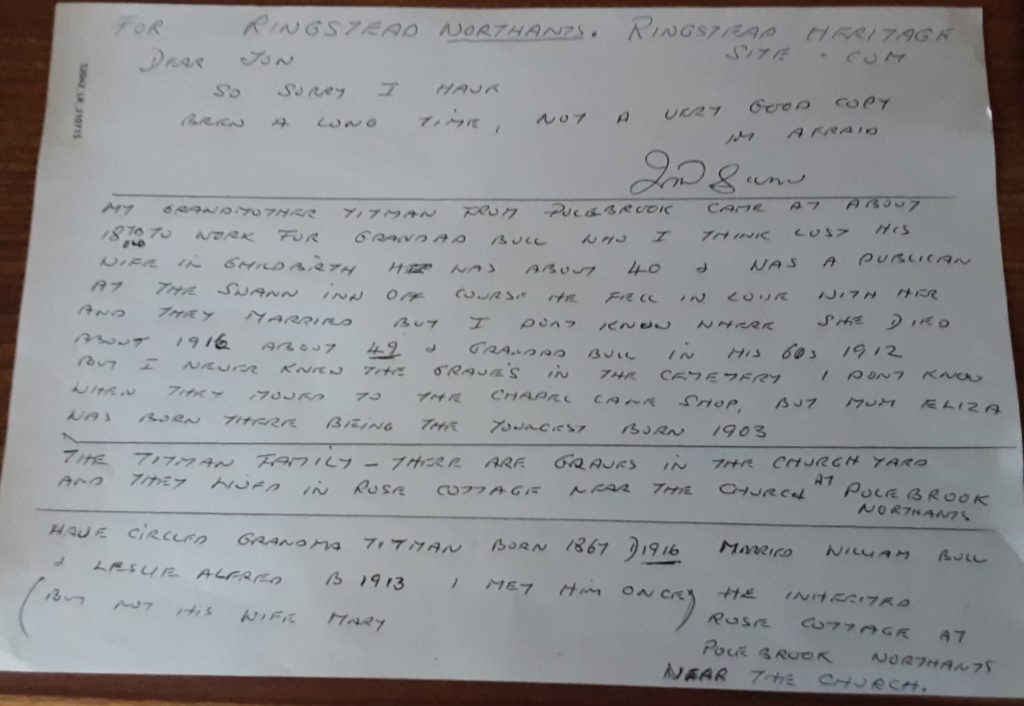 FOR RINGSTEAD NORTHANTS. RINGSTEAD HERITAGE
SITE - COM
DEAR JON
SO SORRY I HAVE
BEEN A LONG TIME, NOT A VERY GOOD COPY
IM AFRAID
MY GRANDMOTHER TITMAN FROM POLEBROOK CAME AT ABOUT
18 TO WORK FOR GRANDAD BULL WHO I THINK LOST HIS
WIFE IN CHILDBIRTH HE WAS ABOUT 40 & WAS A PUBLICAN
AT THE SWANN INN OFF COURSE HE FELL IN LOVE WITH HER
AND THEY MARRIED BUT I DONT KNOW WHERE SHE DIED
ABOUT 1916 ABOUT 49 & GRANDAD BULL IN HIS 60S 1912
BUT I NEVER KNEW THE GRAVE'S IN THE CEMETERY I DONT KNOW
WHEN THEY MOVED TO THE CHAPEL LANE SHOP, BUT MUM ELIZA
WAS BORN THERE BEING THE YOUNGEST BORN 1903
THE TITMAN FAMILY - THERE ARE GRAVES IN THE CHURCH YARD
AND THEY LIVED IN ROSE COTTAGE NEAR THE CHURCH AT POLEBROOK
NORTHANTS
HAVE CIRCLED GRANDMA TITMAN BORN 1867 D 1916 MARRIED WILLIAM BULL
& LESLIE ALFRED B 1913 I MET HIM ONCE) HE INHERITED
(BUT NOT HIS WIFE MARY
ROSE COTTAGE AT
POLEBROOK NORTHANTS
NEAR THE CHURCH.